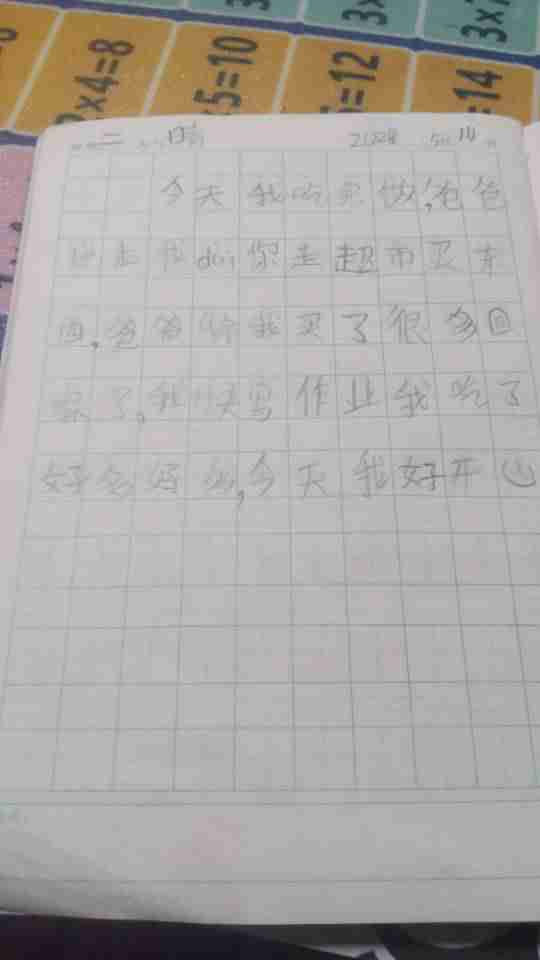 ×4=8
×5=10
=12
=14
3×
3×
二 晴 2022 5 14
今天我吃完饭,爸爸
说走我dai你去超市买东
西,爸爸给我买了很多回
家了,我快写作业我吃了
好多好多,今天我好开心